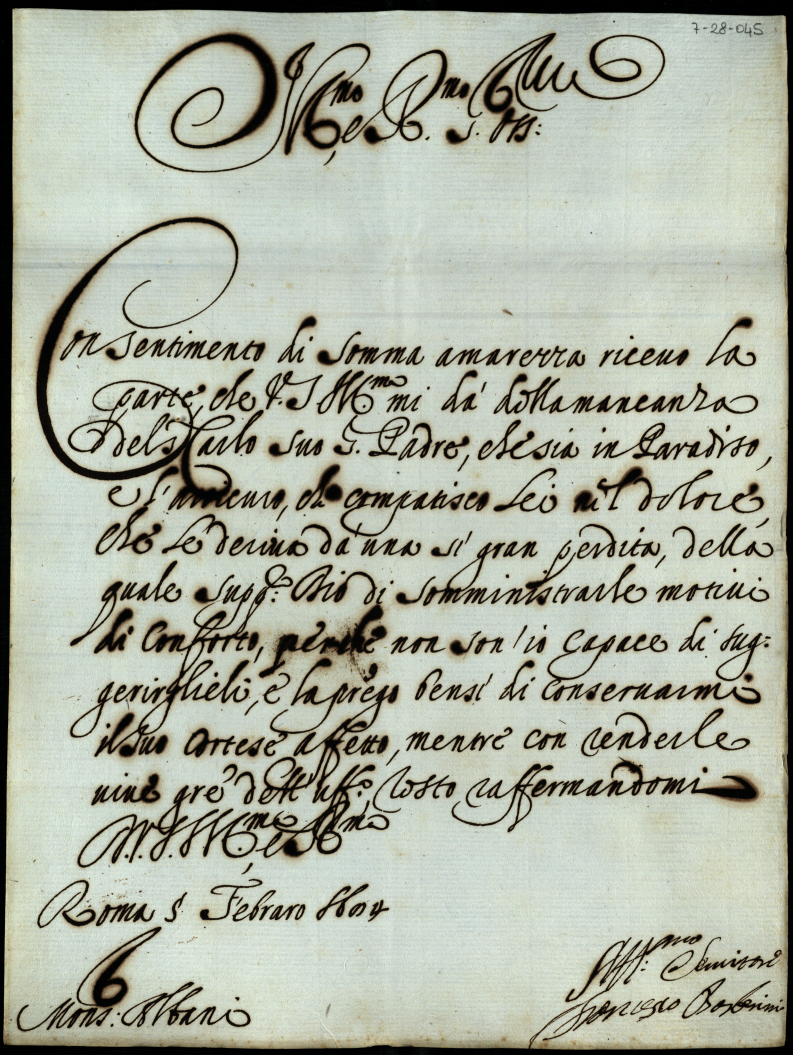 7-28-045
Ill.mo e R.mo S. Oss:
Con sentimento di somma amarezza riceuo la
parte, che V.S. Ill.ma mi dà della mancanza
del S. Carlo suo S. Padre, che sia in Paradiso,
e l'assicuro, che compatisco Lei nel dolore,
che Le deriua da una sì gran perdita, della
quale supp.co Dio di somministrarle motiui
di Conforto, perche non son'io capace di sug-
gerirglieli, e la prego bensì di conseruarmi
il suo cortese affetto, mentre con renderle
uiue gr.e dell'uff.o, resto raffermandomi
D.V.S. Ill.ma, e R.ma
Roma 5 Febraro
Mons: Albani
Aff.mo Seruitore
Francesco Barberini